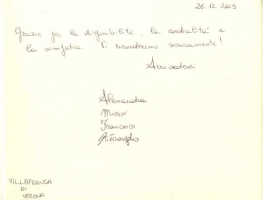 26.12.2005
Grazie per la disponibilità, la cordialità e
la simpatia. Vi ricorderemo sicuramente!
Arrivederci
Alessandra
Marco
Francesca
Piërangelo
VILLAFRANCA
DI
VERONA